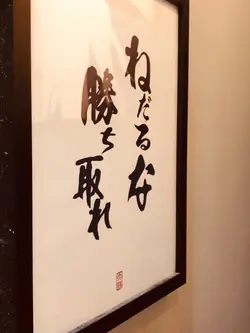 ねだるな
勝ち取れ